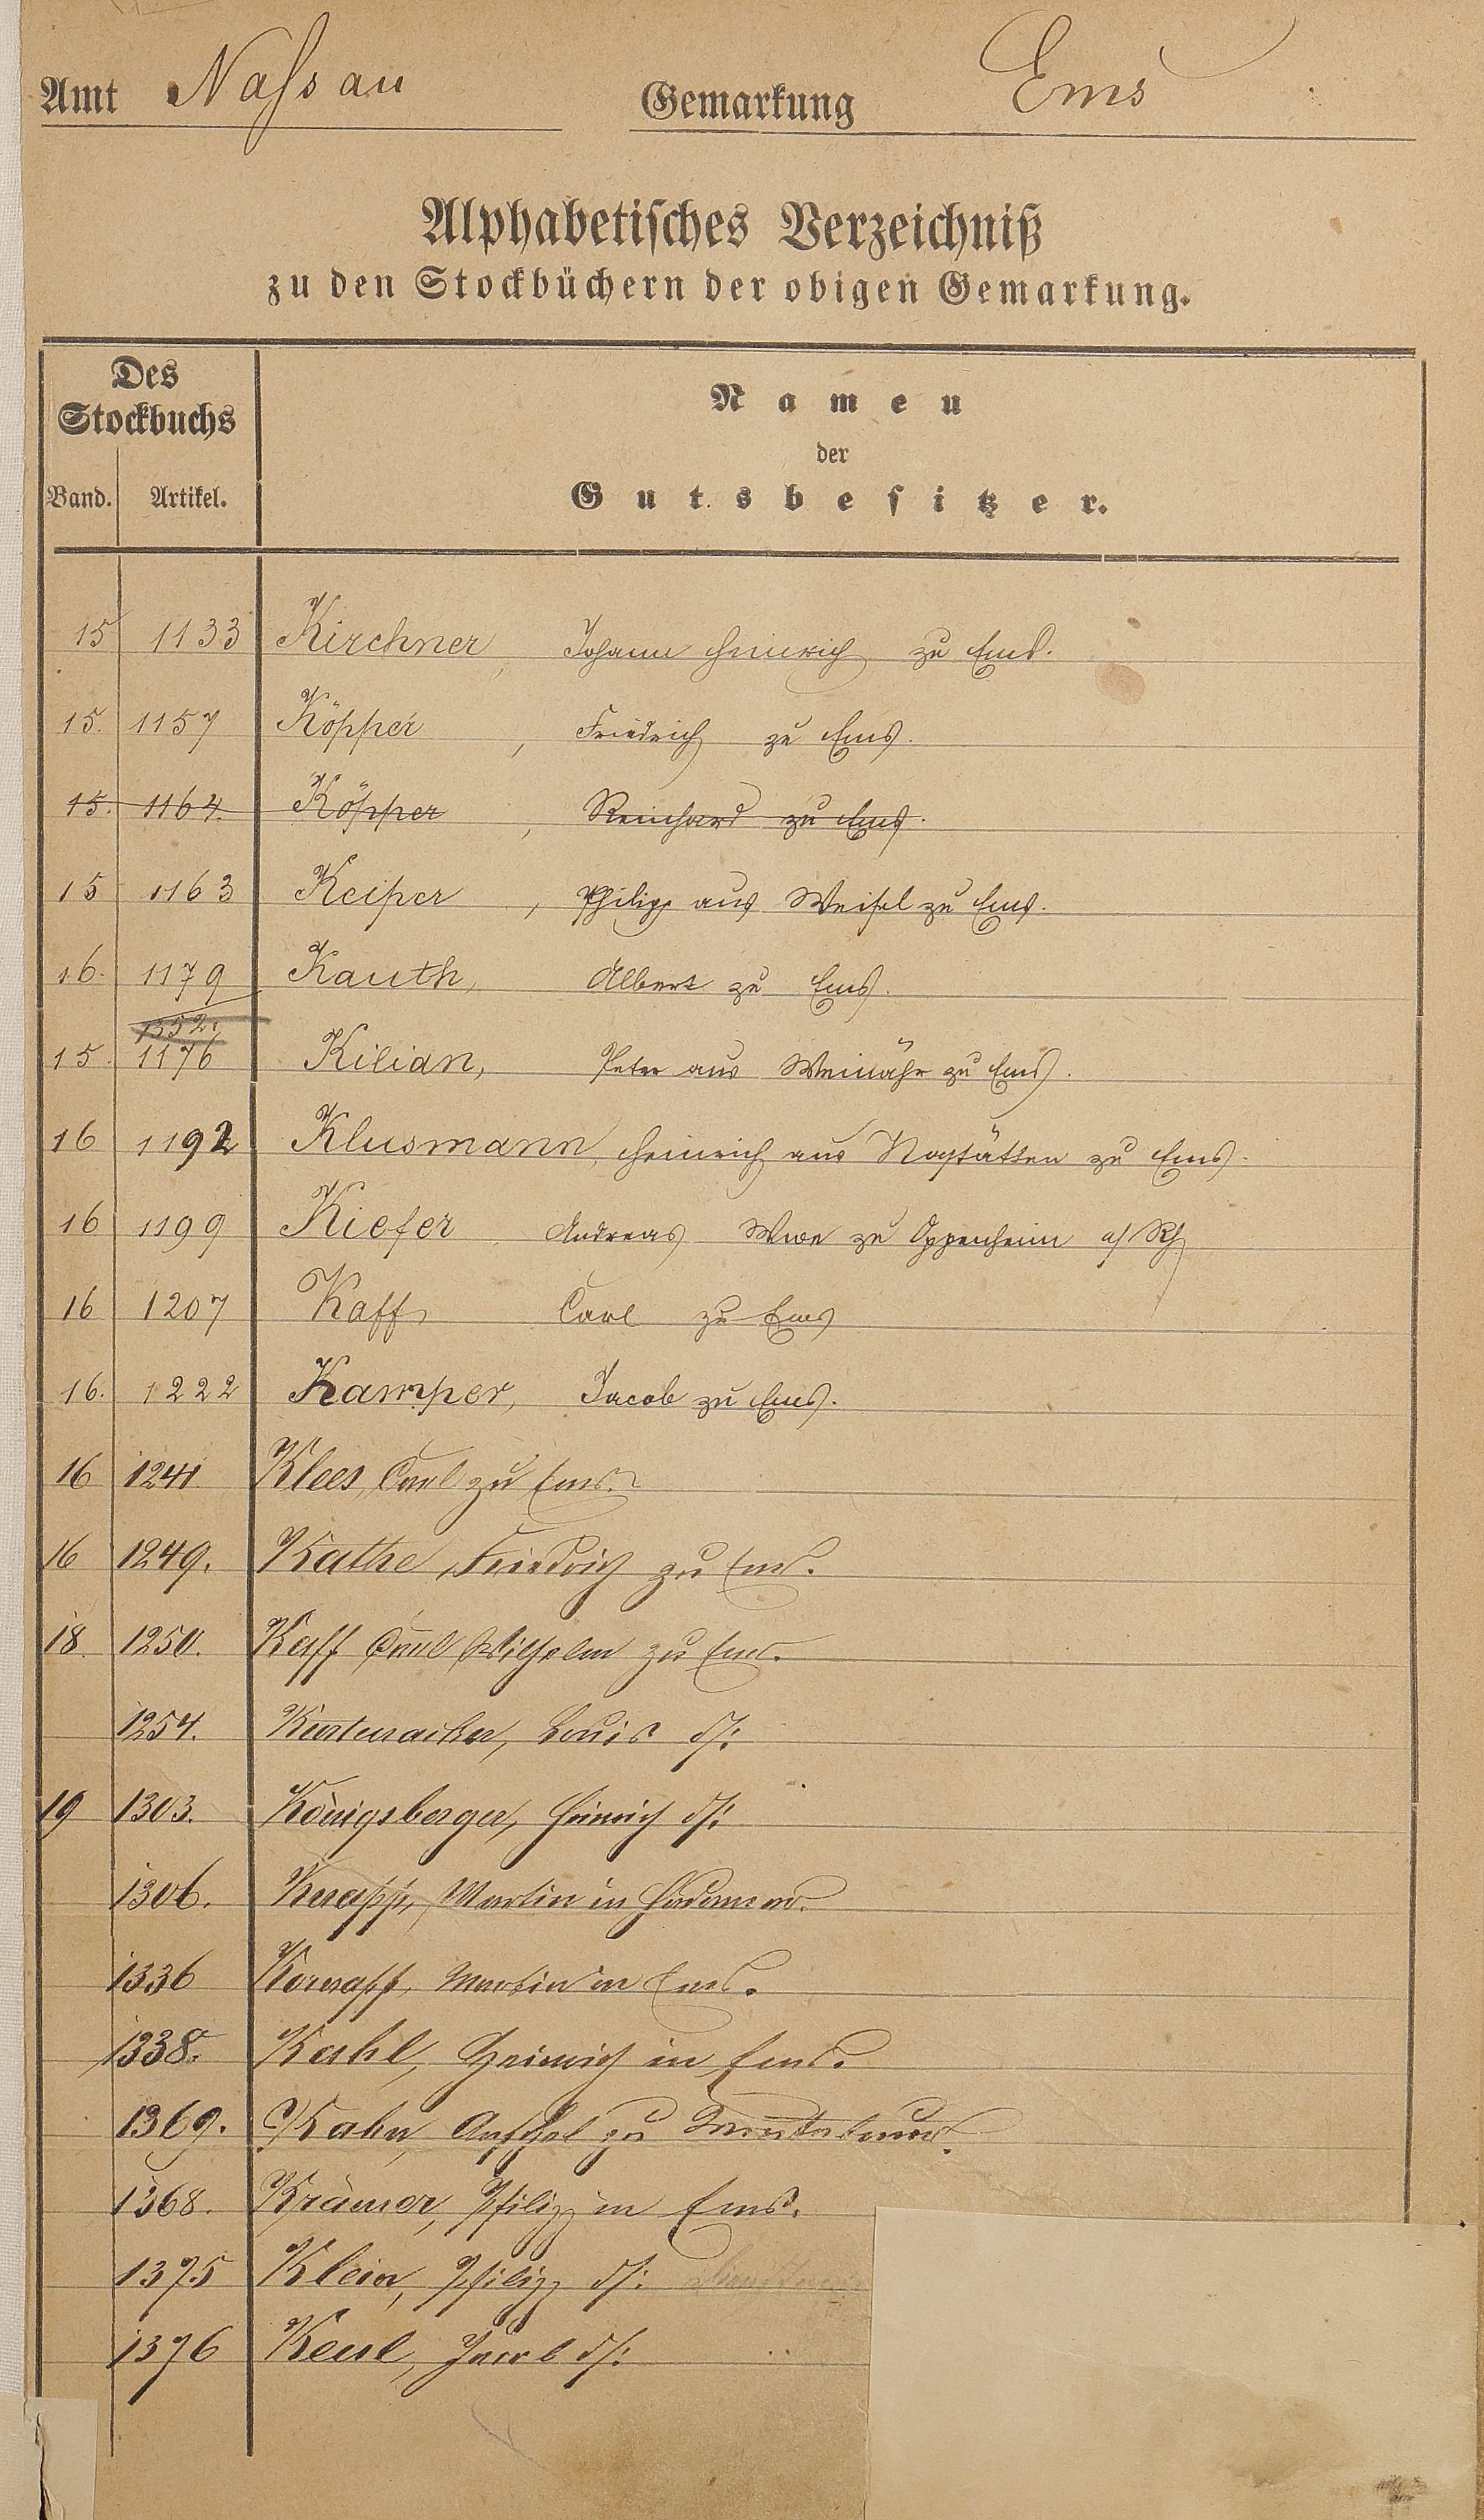 Amt Nassau Gemarkung Ems
Alphabetisches Verzeichniß
zu den Stockbüchern der obigen Gemarkung.
Des
Stockbuchs
Band. Artikel.
Namen
der
Gutsbesitzer.
15 1133 Kirchner, Johann Heinrich zu Ems.
15. 1157 Köpper, Friedrich zu Ems.
15. 1164. Köpper, Reinhard zu Ems.
15 1163 Keiper, Philipp aus Weisel zu Ems.
16. 1179 Kauth, Albert zu Ems.
1352.
15. 1176 Kilian, Peter aus Weinähr zu Ems.
16 1192 Klusmann, Heinrich aus Nastätten zu Ems.
16 1199 Kiefer Andreas Wwe zu Oppenheim a/Rh
16 1207 Kaff Carl zu Ems
16. 1222 Kamper, Jacob zu Ems.
16 1241 Klees, Carl zu Ems.
16 1249. Kathe, Friedrich zu Ems.
18. 1250. Kaff Carl Wilhelm zu Ems.
1254. Louis d/:
19 1303. Königsberger, Heinrich d/:
1306. Knapp, Martin in Hadamar.
1336 Martin in Ems.
1338. Kahl, Heinrich in Ems.
1369. Kahn, zu
1368. Krämer, Philipp in Ems.
1375 Klein, Philipp d/:
1376 Keul, Jacob d/: